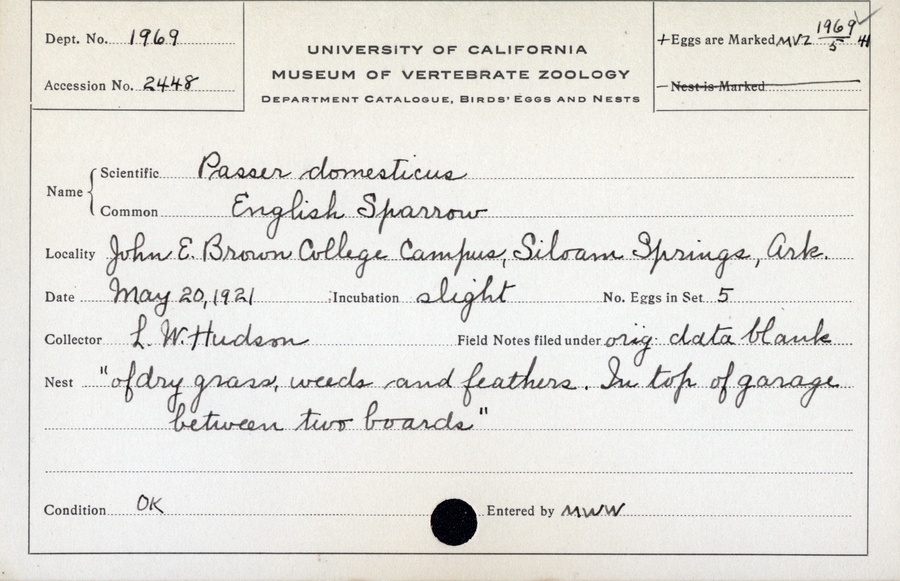 Dept. No. 1969
Accession No. 2448
UNIVERSITY OF CALIFORNIA
MUSEUM OF VERTEBRATE ZOOLOGY
DEPARTMENT CATALOGUE, BIRDS' EGGS AND NESTS
+Eggs are Marked MVZ 1969/5
— Nest is Marked
Name { Scientific Passer domesticus
Common English Sparrow
Locality John E. Brown College Campus, Siloam Springs, Ark.
Date May 20, 1921 Incubation slight No. Eggs in Set 5
Collector L. W. Hudson Field Notes filed under orig. data blank
Nest "of dry grass, weeds and feathers. In top of garage
between two boards"
Condition OK Entered by MWW